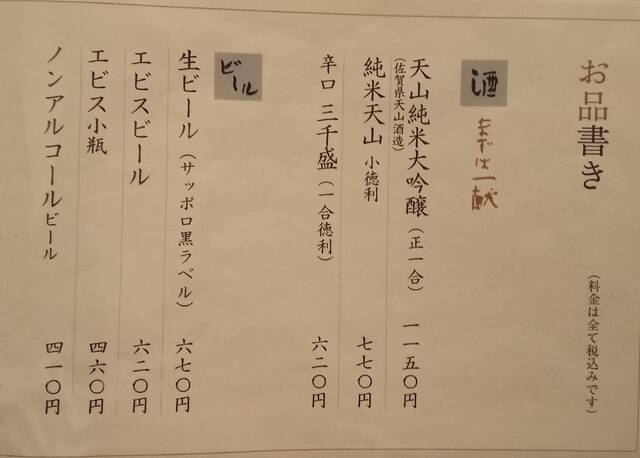 お品書き
(料金は全て税込みです)
酒
まずは一献
天山純米大吟醸(正一合) 一一五〇円
(佐賀県天山酒造)
純米天山 小徳利 七七〇円
辛口 三千盛(一合徳利) 六二〇円
ビール
生ビール(サッポロ黒ラベル) 六七〇円
エビスビール 六二〇円
エビス小瓶 四六〇円
ノンアルコールビール 四一〇円